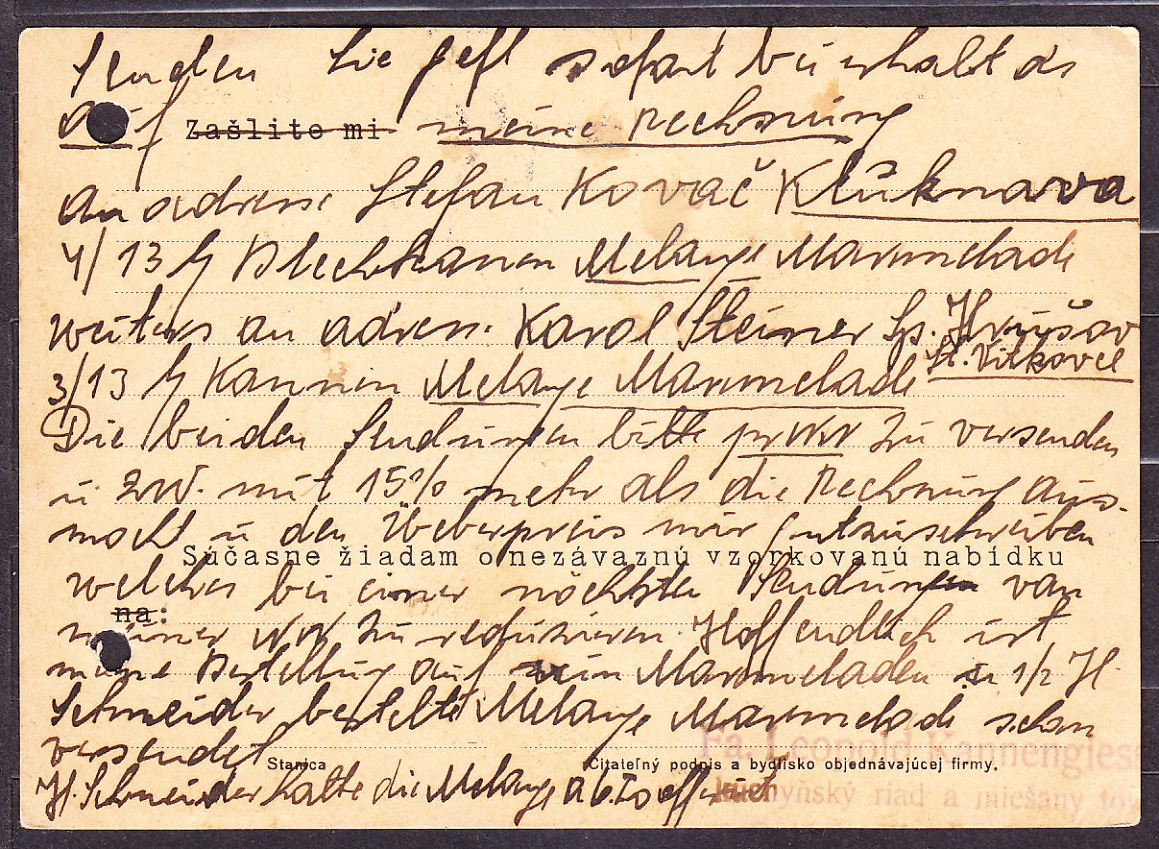 Senden Sie gefl sofort bei erhalt ds
auf Zašlite mi meine Rechnung
an adresse Stefan Kovač Klůknava
4/13 Blechkannen Melange Marmelade
weiters an adress. Karol Steiner Sp. Hrušov
St. Vitkovce
3/13 Kannen Melange Marmelade
Die beiden Sendungen bitte per NN zu versenden
u. zw. mit 15% mehr als die Rechnung aus-
macht u den Überpreis mir gutzuschreiben
Súčasne žiadam o nezáväznú vzorkovanú nabídku
welches bei einer nächste Sendungen von
na:
meiner NN zu reduzieren. Hoffendlich ist
meine Bestellung auf Marmeladen u 1/2 H
Schneider bestelte Melange Marmelade schon
versendet
Stanica Čitateľný podpis a bydlisko objednávajúcej firmy.
Fa. Leopold Kannengiess
H. Schneider hatte die Melange a 6.
kuchyňský riad a miešany tov